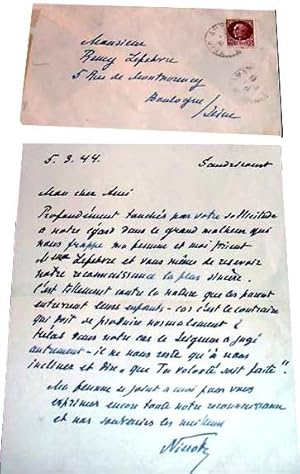 Monsieur
Remy Lefebvre
5 Rue de Montmorency
Boulogne
/Seine
5.3.44.
Mon cher Ami
Profondément touchés par votre sollicitude
à notre égard dans le grand malheur qui
nous frappe ma femme et moi prient
Mme Lefebvre et vous même de recevoir
notre reconnaissance la plus sincère.
C'est tellement contre la nature que les parents
enterrent leurs enfants - car c'est le contraire
qui doit se produire normalement
hélas dans notre cas le Seigneur a jugé
autrement - il ne nous reste qu'à nous
incliner et dire que Ta volonté soit faite".
Ma femme se joint à moi pour vous
exprimer encore toute notre reconnaissance
et nos souvenirs les meilleurs